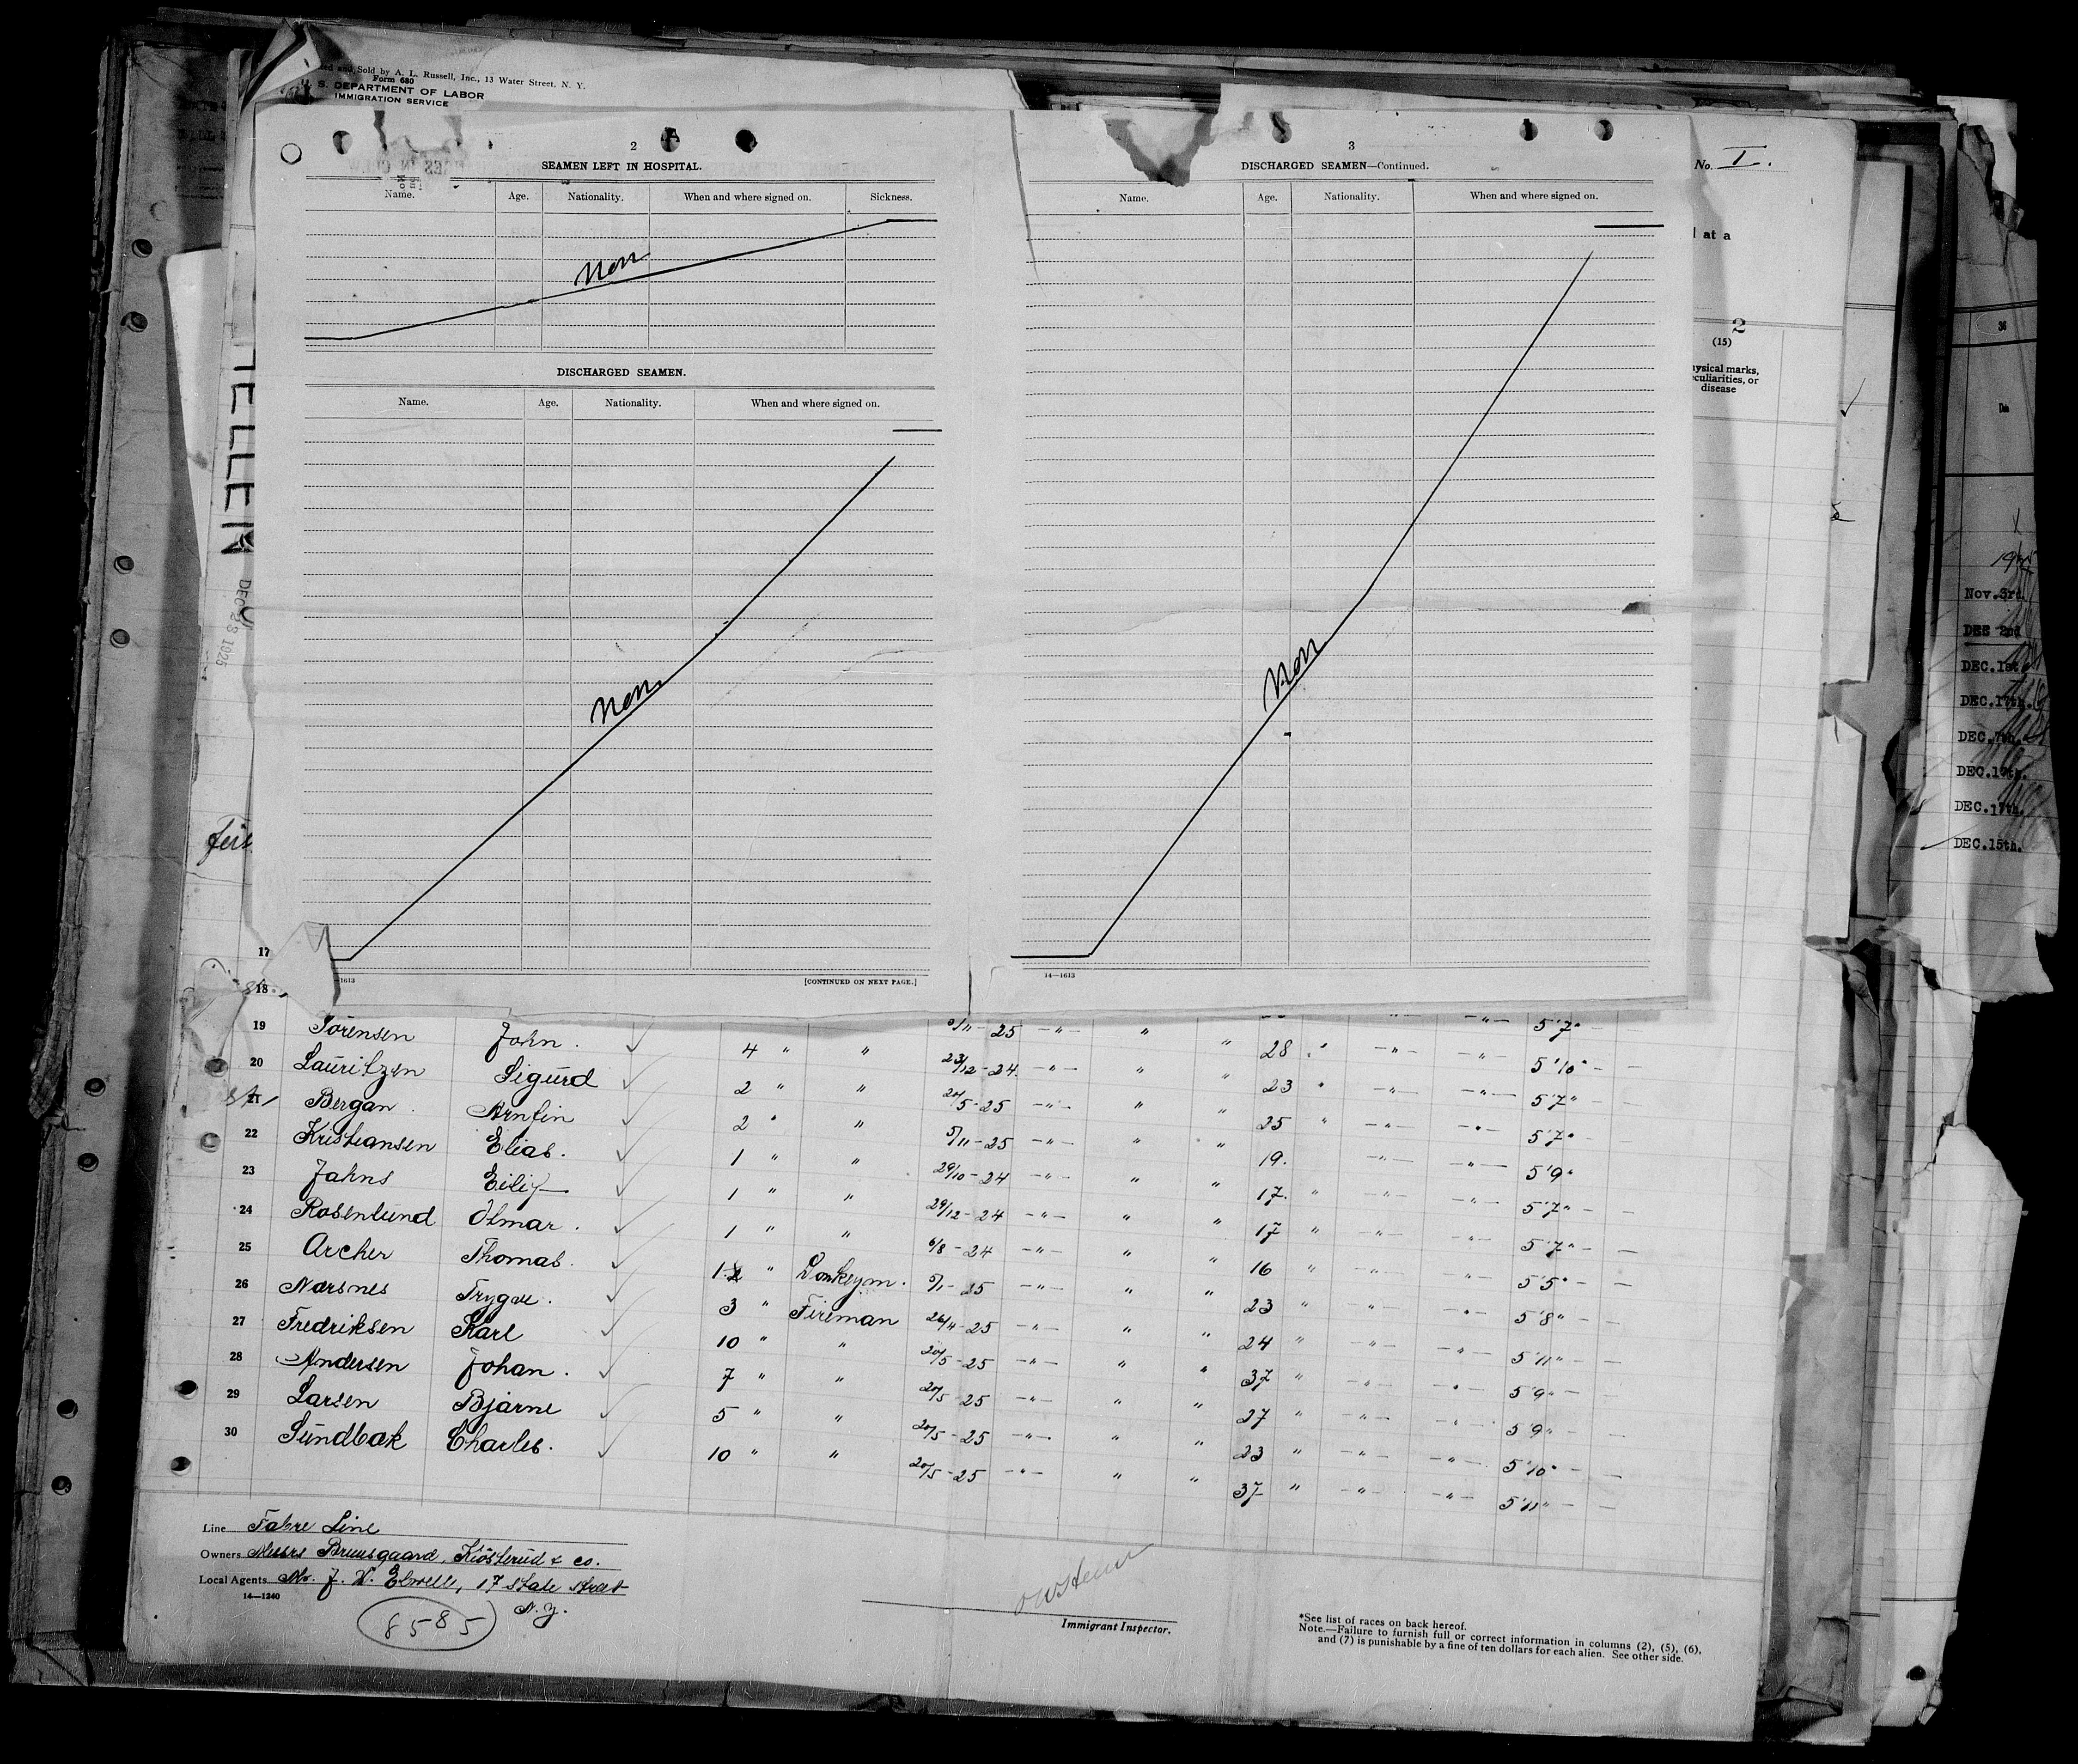 Sold by A. L. Russell, Inc., 13 Water Street, N. Y.
Form 680
S. DEPARTMENT OF LABOR
IMMIGRATION SERVICE
2
SEAMEN LEFT IN HOSPITAL.
Name. Age. Nationality. When and where signed on. Sickness.
Non
DISCHARGED SEAMEN.
Name. Age. Nationality. When and where signed on.
Non
1613
[CONTINUED ON NEXT PAGE.]
3
DISCHARGED SEAMEN—Continued.
Name. Age. Nationality. When and where signed on.
Non
14—1613
No. I.
at a
2
(15)
ysical marks,
culiarities, or
disease
36
Nov. 3rd.
DEC. 1st
DEC. 17th.
DEC. 7th.
DEC. 17th.
DEC. 17th.
DEC. 15th.
TELLEM
DEC 28 1925
17
18
19 Sörensen John. 4 " " 25 —"— " " 28 " —"— —"— 5'10" —
20 Lauritzen Sigurd 2 " " 23/12-24 —"— " " 23 " —"— —"— 5'7" —
21 Bergan Arnfin 2 " " 20/5-25 —"— " " 25 " —"— —"— 5'7" —
22 Kristiansen Elias. 1 " " 5/11-25 —"— " " 19. —"— —"— 5'9"
23 Jahns Eilif 1 " " 29/10-24 —"— " " 17. " —"— —"— 5'7" —
24 Rosenlund Olmar. 1 " " 29/12-24 —"— " " 17 " —"— —"— 5'7" —
25 Archer Thomas. 1 " Donkeym. 6/8-24 —"— " " 16 " —"— —"— 5'5" —
26 Narsnes Trygve. 3 " Fireman 25 —"— " " 23 " —"— —"— 5'8" —
27 Fredriksen Karl 10 " " 26/11-25 —"— " " 24 " —"— —"— 5'11" —
28 Andersen Johan. 7 " " 20/5-25 —"— " " 37 " —"— —"— 5'9" —
29 Larsen Bjarne 5 " " 20/5-25 —"— " " 27 " —"— —"— 5'9" —
30 Sundbak Charles. 10 " " 20/5-25 —"— " " 23 " —"— —"— 5'10" —
20/5-25 —"— " " 37 " —"— —"— 5'11" —
Line Fabre Line
Owners Messrs Bruusgaard, Kiösterud & co.
Local Agents Mr. J. W. Elwell, 17 State Street
14—1240
N.Y.
8585
Immigrant Inspector.
*See list of races on back hereof.
Note.—Failure to furnish full or correct information in columns (2), (5), (6),
and (7) is punishable by a fine of ten dollars for each alien. See other side.